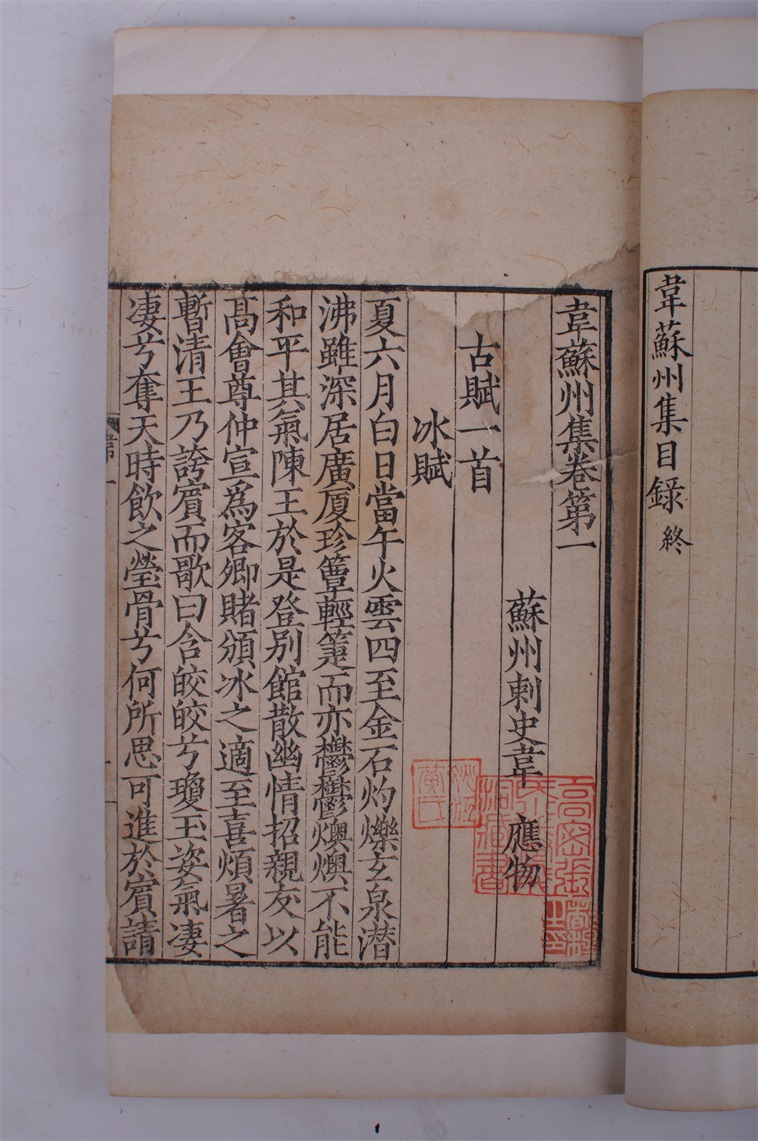 韋蘇州集目録 終
韋蘇州集卷第一
蘇州刺史韋 應物
古賦一首
冰賦
夏六月白日當午火雲四至金石灼爍玄泉潛
沸雖深居廣厦珍簟輕箑而亦鬱鬱燠燠不能
和平其氣陳王於是登别館散幽情招親友以
髙會尊仲宣爲客卿睹頒冰之適至喜煩暑之
暫清王乃誇賓而歌曰含皎皎兮瓊玉姿氣凄
凄兮奪天時飲之瑩骨兮何所思可進於賓請
韋一